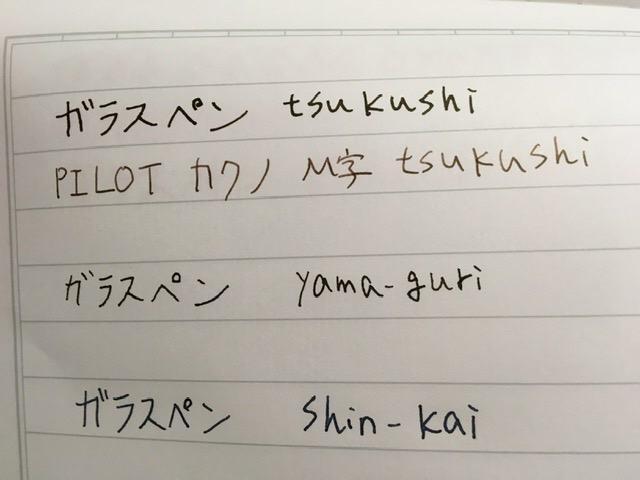 ガラスペン tsukushi
PILOT カクノ M字 tsukushi
ガラスペン yama-guri
ガラスペン shin-kai